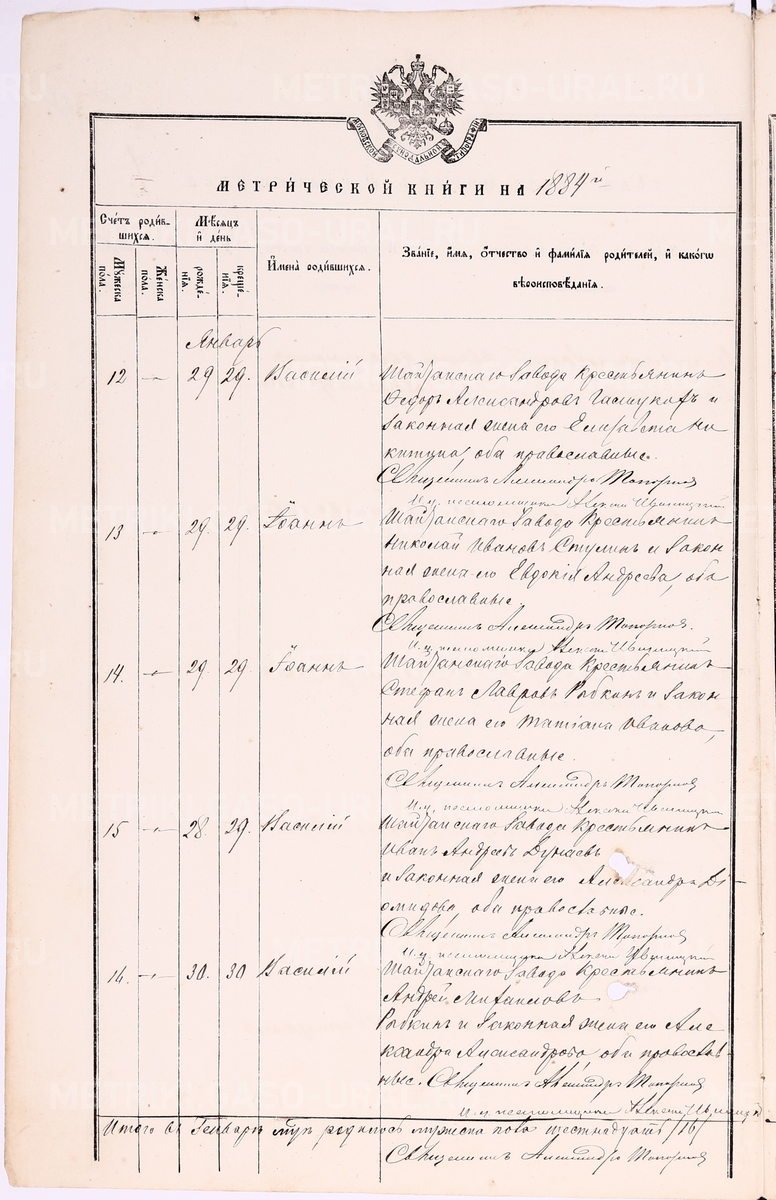 МЕТРИ́ЧЕСКОЙ КНИ́ГИ НА 1884й
Сче́тъ роди́в-
шихся.
Мѣ́сяцъ
и҆ де́нь
И҆мена̀ роди́вшихся.
Зва́нїе, и҆́мя, ѻ҆́тчество и҆ фами́лїя роди́телей, и҆ како́гѡ
вѣроисповѣ́данїя.
Му́жеска
по́ла.
Же́нска
по́ла.
рожде́-
нїя.
креще́-
нїя.
Январь
12 — 29 29. Василій Шайтанскаго Завода Крестьянинъ
Ѳедоръ Александровъ и
законная жена его Елисавета Ни
китина, оба православные.
Священникъ Александръ Топорковъ
И. д. псаломщика
13 — 29. 29. Іоаннъ Шайтанскаго Завода Крестьянинъ
Николай Ивановъ Стулинъ и закон
ная жена его Евдокія Андреева, оба
православные.
Священникъ Александръ Топорковъ.
И. д. псаломщика
14. — 29 29 Іоаннъ Шайтанскаго Завода Крестьянинъ
Стефанъ Лавровъ Рыбкинъ и закон
ная жена его Татіана Иванова,
оба православные.
Священникъ Александръ Топорковъ
И. д. псаломщика
15 — 28 29. Василій Шайтанскаго Завода Крестьянинъ
Иванъ Андреевъ Дунаевъ
и законная жена его Александра Ді-
омидова, оба православные.
Священникъ Александръ Топорковъ
И. д. псаломщика
16. — 30. 30 Василій Шайтанскаго Завода Крестьянинъ
Андрей Михайловъ
Рыбкинъ и законная жена его Але
ксандра Александрова, оба православ-
ные. Священникъ Александръ Топорковъ
И. д. псаломщика
Итого въ Генварѣ м-цѣ родилось мужеска пола шестнадцать /16/
Священникъ Александръ Топорковъ